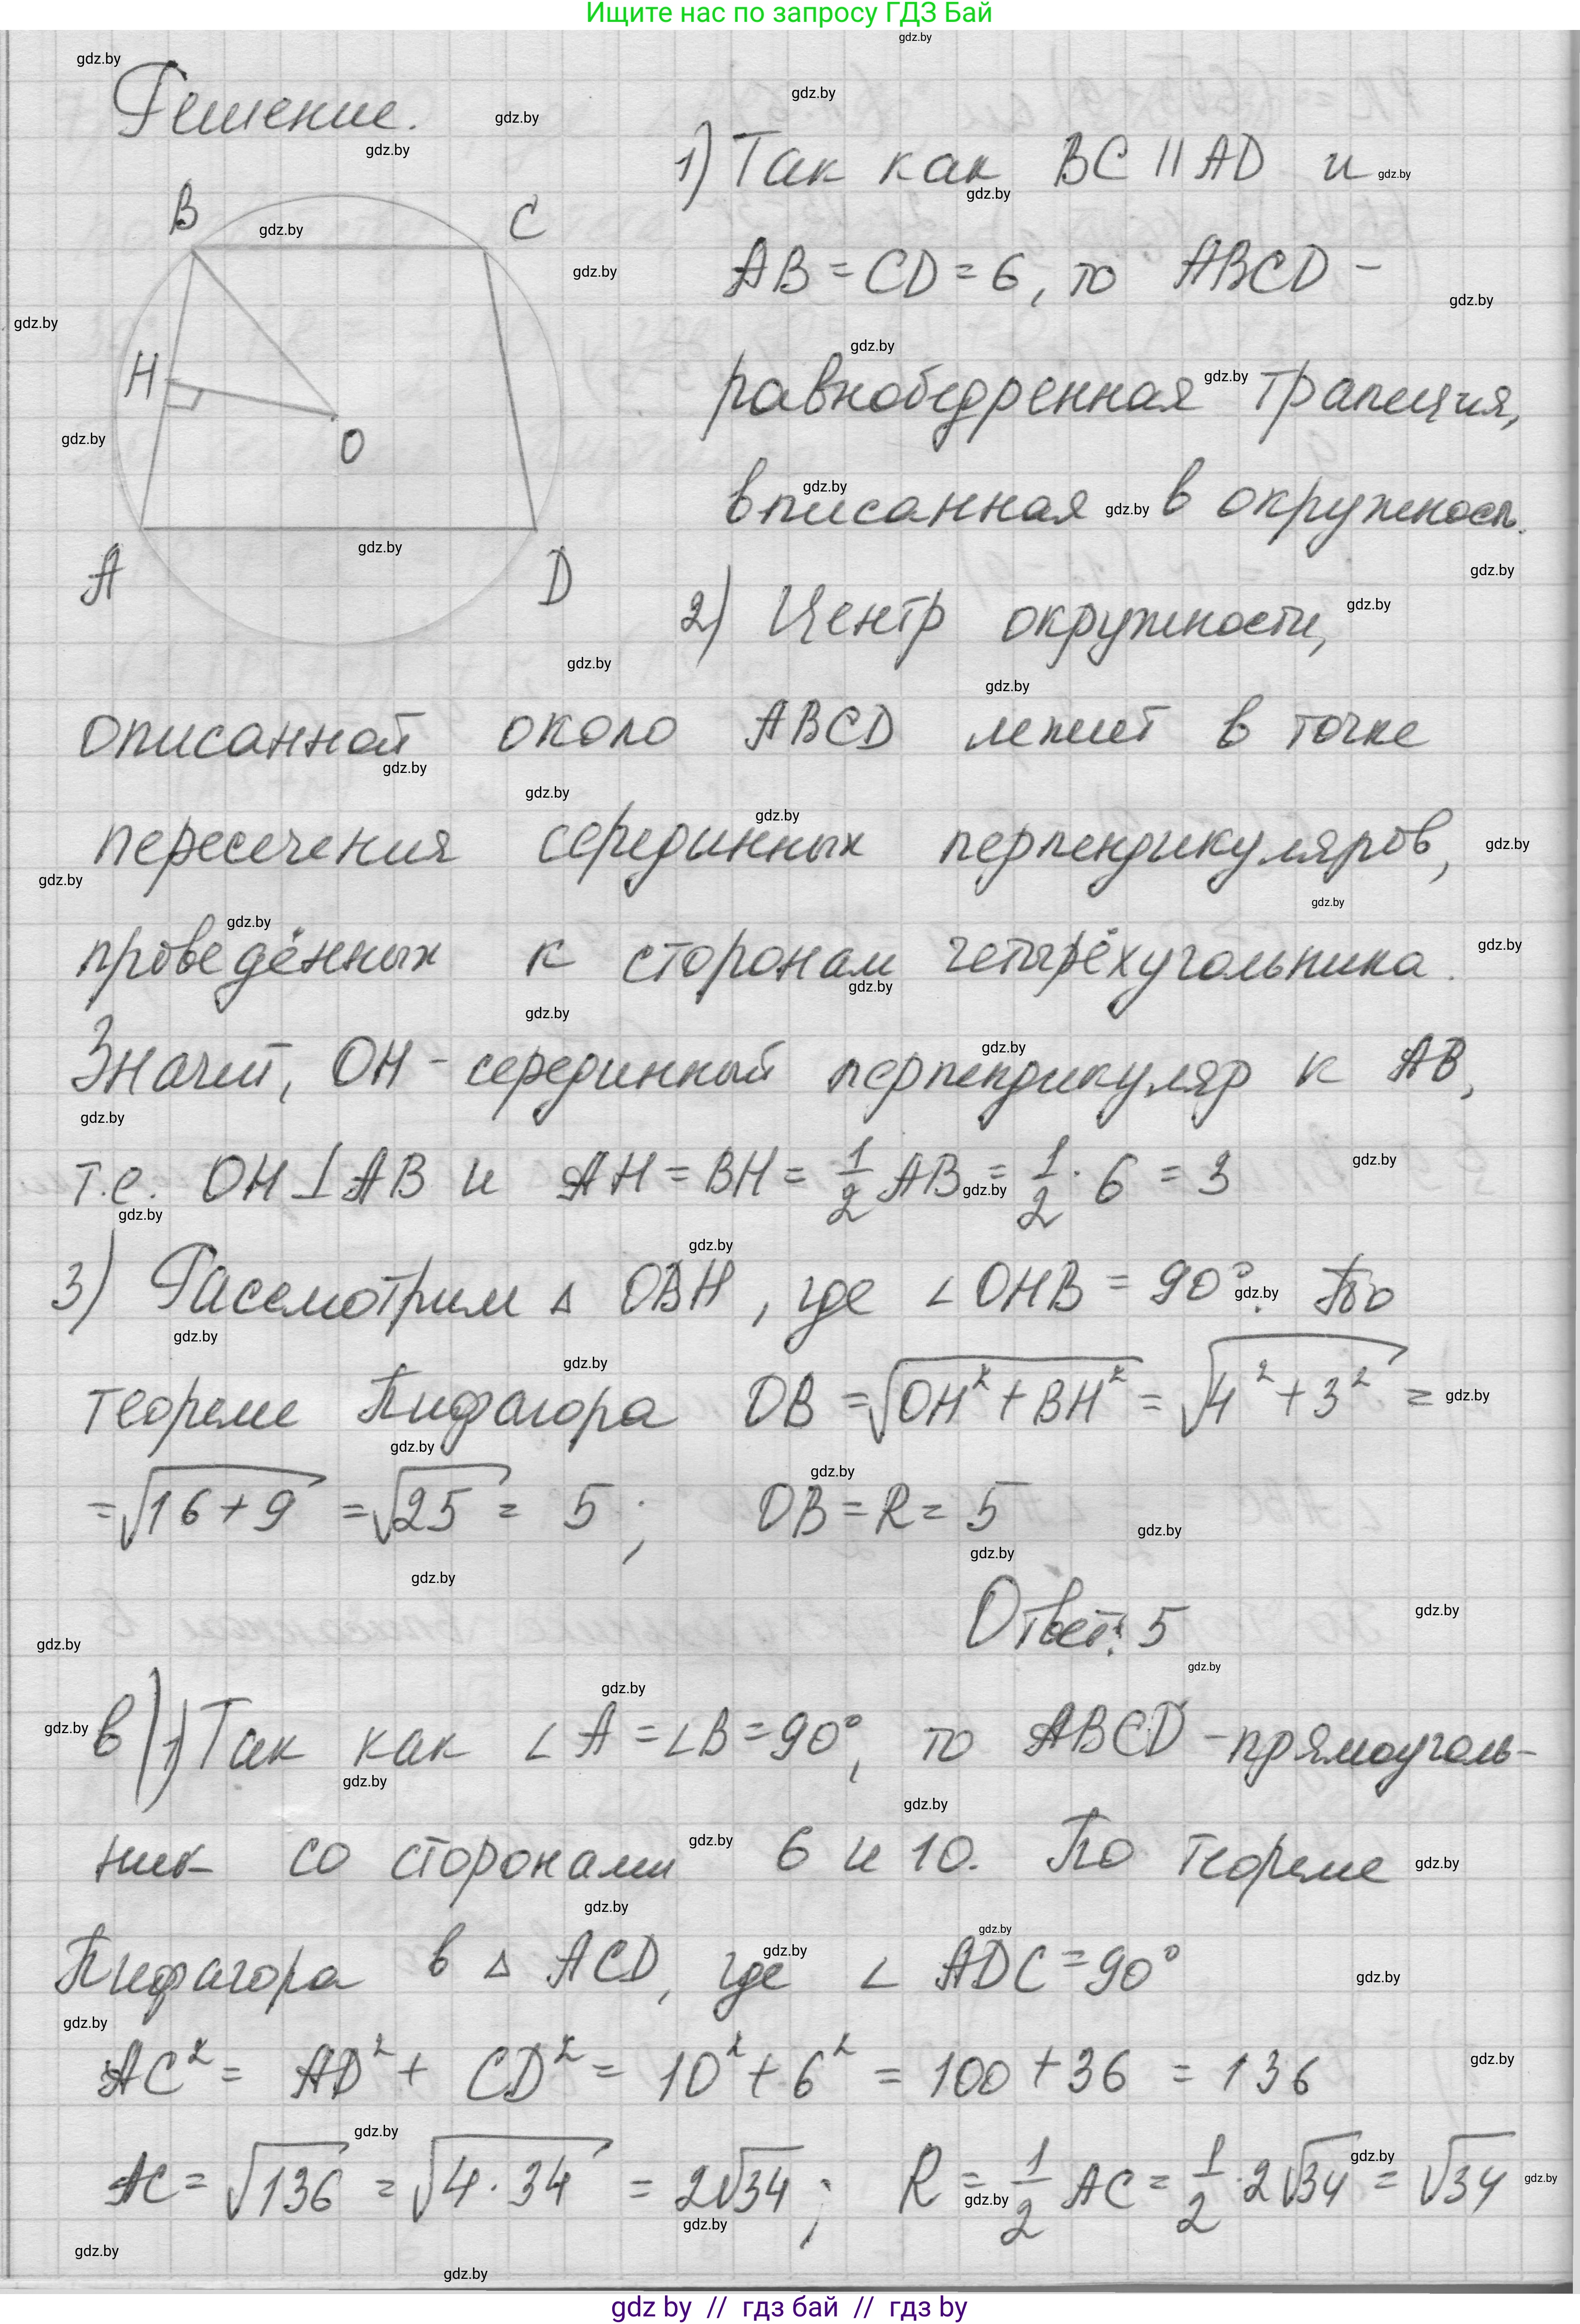 Ищите нас по запросу ГДЗ Бай
Решение.
1) Так как BC || AD и
AB = CD = 6, то ABCD -
равнобедренная трапеция,
вписанная в окружност.
B
C
H
O
A
D
2) Центр окружности,
описанной около ABCD лежит в точке
пересечения серединных перпендикуляров,
проведённых к сторонам четырёхугольника.
Значит, OH - серединный перпендикуляр к AB,
т.е. OH ⊥ AB и AH = BH = 1/2 AB = 1/2 · 6 = 3
3) Рассмотрим △ OBH, где ∠ OHB = 90°. По
теореме Пифагора OB = √(OH² + BH²) = √(4² + 3²) =
= √(16 + 9) = √25 = 5; OB = R = 5
Ответ: 5
в) 1) Так как ∠ A = ∠ B = 90°, то ABCD - прямоуголь-
ник со сторонами 6 и 10. По теореме
Пифагора в △ ACD, где ∠ ADC = 90°
AC² = AD² + CD² = 10² + 6² = 100 + 36 = 136
AC = √136 = √(4 · 34) = 2√34; R = 1/2 AC = 1/2 · 2√34 = √34
gdz by // гдз бай // гдз by